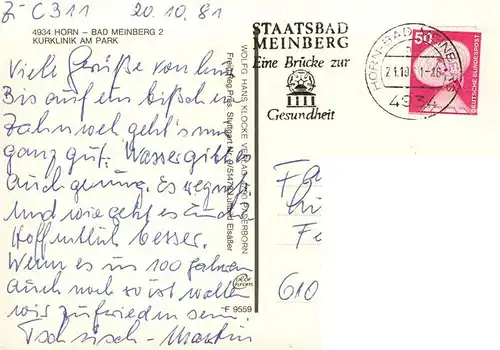 Zi - C 311   20.10.81
4934 HORN – BAD MEINBERG 2
KURKLINIK AM PARK
Viele Grüße von hier
Bis auf ein bißchen
Zahnweh geht's uns
ganz gut. Wasser gibt es
auch genung. Es regnet.
Und wie geht es Euch
Hoffentlich besser.
Wenn es in 100 Jahren
auch noch so ist wollen
wir zufrieden sein.
Martin
WOLFG. HANS KLOCKE VERLAG PADERBORN
Freigabe Reg. Präs. Stuttgart Nr. Luftbild Elsäßer
F 9559
STAATSBAD
MEINBERG
Eine Brücke zur
Gesundheit
HORN-BAD MEINBERG
21.10. 1-16
4934
50
DEUTSCHE BUNDESPOST
Fa
Fe
610